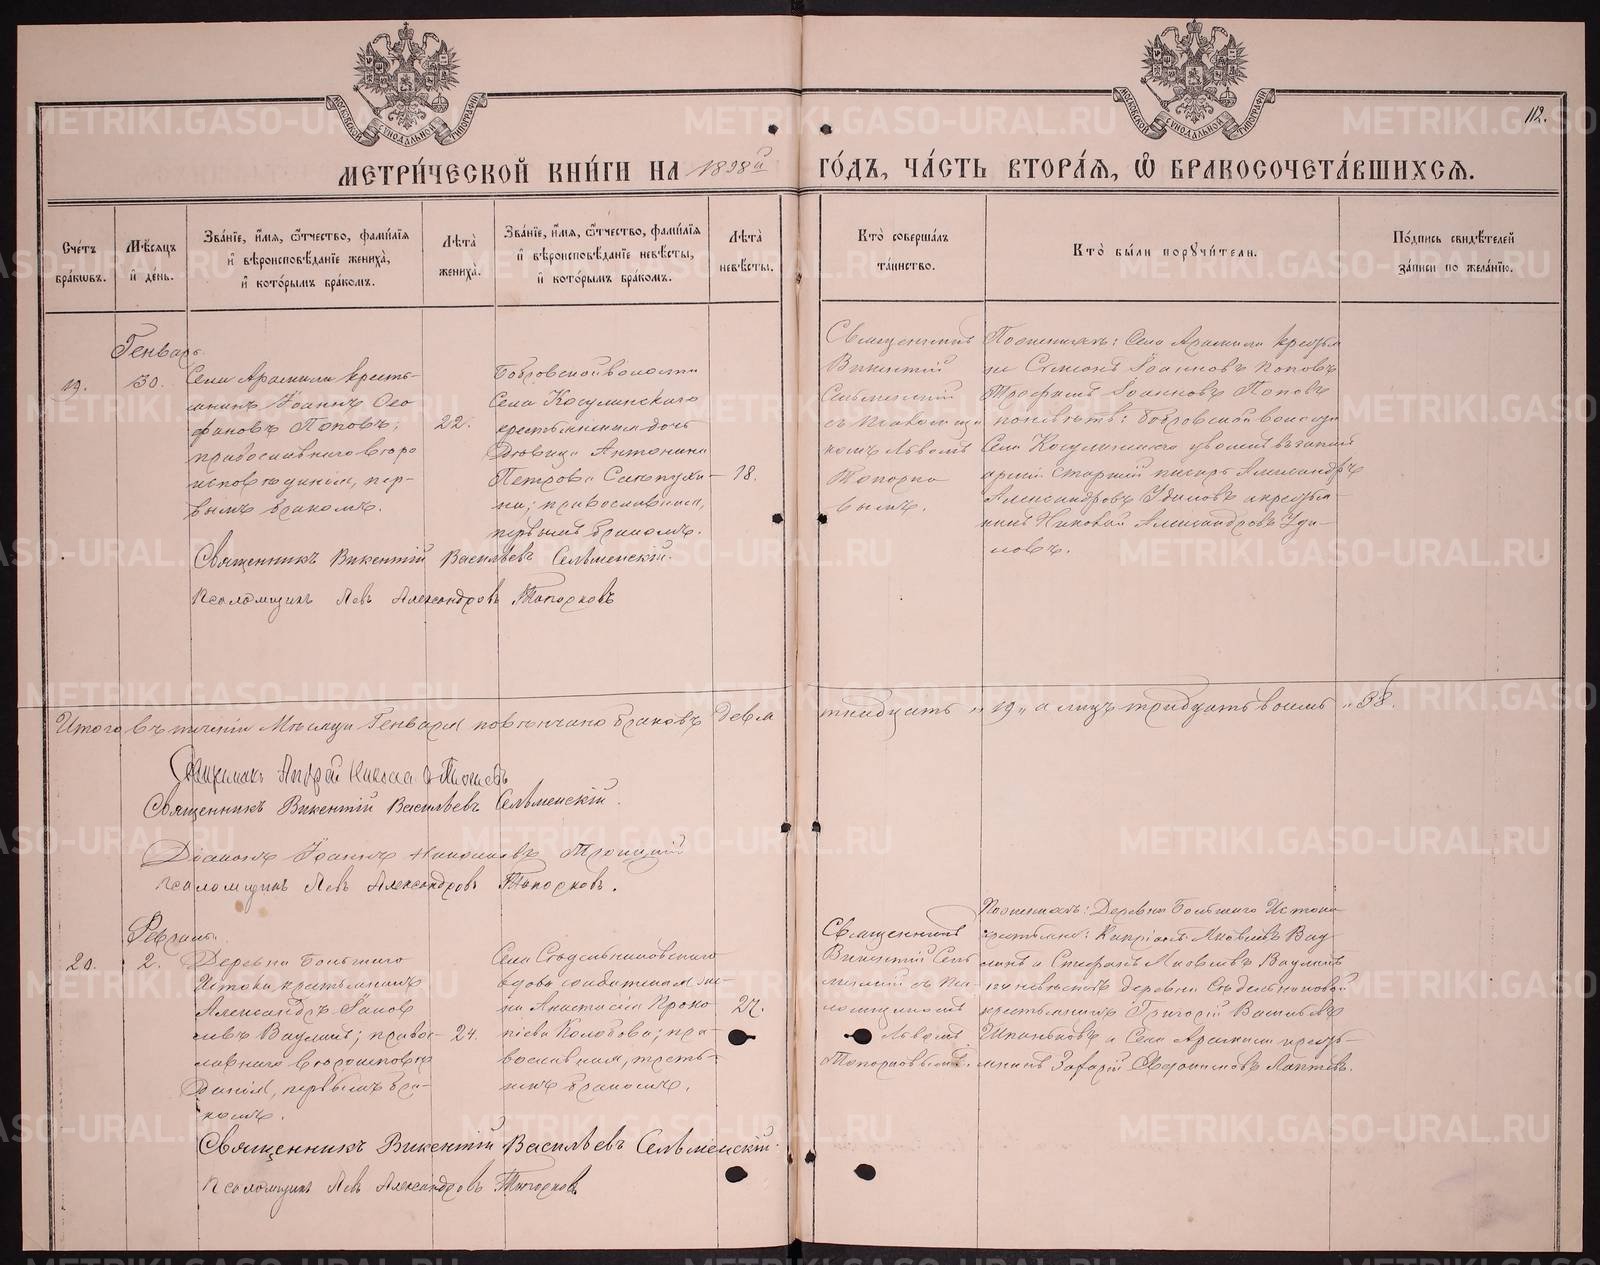 МЕТРИЧЕСКОЙ КНИГИ НА 1898й ГОДЪ, ЧАСТЬ ВТОРАЯ, Ѡ БРАКОСОЧЕТАВШИХСЯ.
112.
Счетъ браковъ.
Мѣсяцъ и день.
Званіе, имя, отчество, фамилія
и вѣроисповѣданіе жениха,
и которымъ бракомъ.
Лѣта жениха.
Званіе, имя, отчество, фамилія
и вѣроисповѣданіе невѣсты,
и которымъ бракомъ.
Лѣта невѣсты.
Кто совершалъ
таинство.
Кто были поручители.
Подпись свидѣтелей
записи по желанію.
Генварь
19.
30.
Села Арамили кресть-
янинъ Іоаннъ Ѳео
фановъ Поповъ;
православнаго вѣро
исповѣданія, пер-
вымъ бракомъ.
22.
Бобровской волости
Села Косулинскаго
крестьянская дочь
дѣвица Антонина
Петрова
на; православная,
первымъ бракомъ.
18.
Священникъ
Викентій
Сельменскій
съ Псаломщи
комъ Львомъ
Топорко
вымъ.
По женихѣ: Села Арамили крестья
не Симонъ Іоанновъ Поповъ
Трофимъ Іоанновъ Поповъ
по невѣстѣ: Бобровской волости
Села Косулинскаго
старшій писарь Александръ
Александровъ Удиловъ и крестья-
нинъ Николай Александровъ Уди-
ловъ.
Священникъ Викентій Васильевъ Сельменскій.
Псаломщикъ Левъ Александровъ Топорковъ
Итого въ теченіи Мѣсяца Генваря повѣнчано браковъ девя
тнадцать „19„ а лицъ тридцать восемь „38.
Священникъ Андрей
Священникъ Викентій Васильевъ Сельменскій.
Діаконъ Іоаннъ Николаевъ Троицкій
Псаломщикъ Левъ Александровъ Топорковъ.
Февраль
20.
2.
Деревни Большаго
Истока крестьянинъ
Александръ Іаков
левъ Ваулинъ; право-
славнаго вѣроисповѣ
данія, первымъ бра-
комъ.
24.
Села
вдова
на Анастасія Проко
піева Колобова; пра-
вославная, треть-
имъ бракомъ.
27.
Священникъ
Викентій Сель
менскій съ Пса
ломщикомъ
Львомъ
Топорковымъ.
По женихѣ: Деревни Большаго Истока
крестьяне: Кипріанъ Яковлевъ Вау
линъ и Стефанъ Яковлевъ Ваулинъ
по невѣстѣ деревни
крестьянинъ Григорій Васильевъ
и Села Арамили кресть-
янинъ Захарій Лаптевъ.
Священникъ Викентій Васильевъ Сельменскій.
Псаломщикъ Левъ Александровъ Топорковъ
METRIKI.GASO-URAL.RU